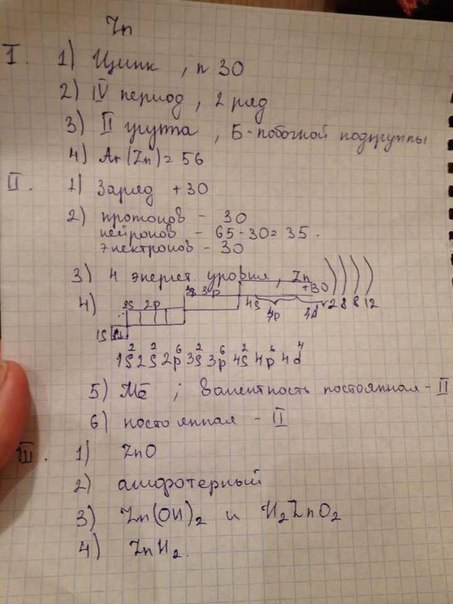 Zn
I. 1) Цинк, n 30
2) IV период, 2 ряд
3) II группа, Б-побочной подгруппы
4) Ar(Zn) = 56
II. 1) Заряд +30
2) протонов - 30
нейронов - 65-30=35.
электронов - 30
3) 4 энергет. уровня, Zn +30 ) ) ) )
2 8 8 12
4) 1S 2S 2p 3S 3p 4S 4p 3d
1S² 2S² 2p⁶ 3S² 3p⁶ 4S² 4p⁶ 4d⁴
5) Me ; валентность постоянная - II
6) постоянная - II
III. 1) ZnO
2) амфотерный
3) Zn(OH)₂ и H₂ZnO₂
4) ZnH₂.